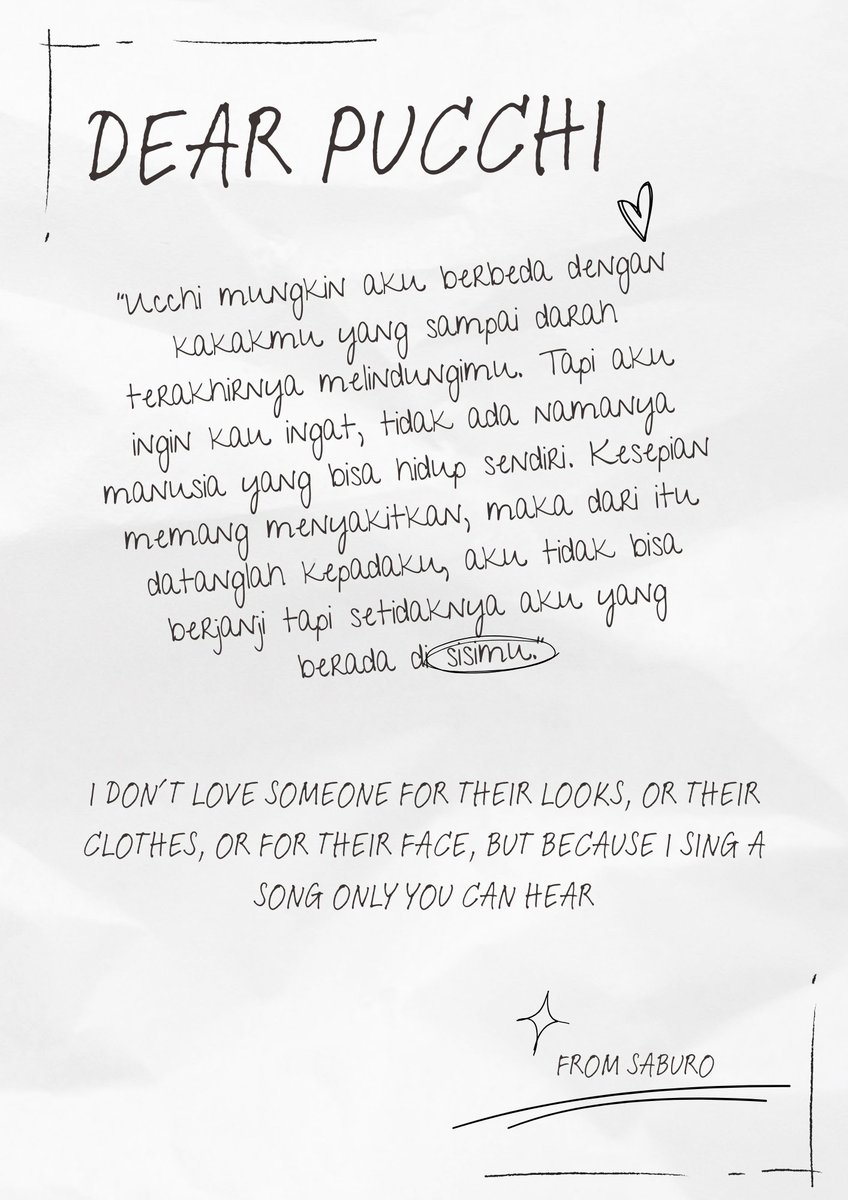 DEAR PUCCHI
"Ucchi mungkin aku berbeda dengan
kakakmu yang sampai darah
terakhirnya melindungimu. Tapi aku
ingin kau ingat, tidak ada namanya
manusia yang bisa hidup sendiri. Kesepian
memang menyakitkan, maka dari itu
datanglah kepadaku, aku tidak bisa
berjanji tapi setidaknya aku yang
berada di sisimu."
I DON'T LOVE SOMEONE FOR THEIR LOOKS, OR THEIR
CLOTHES, OR FOR THEIR FACE, BUT BECAUSE I SING A
SONG ONLY YOU CAN HEAR
FROM SABURO